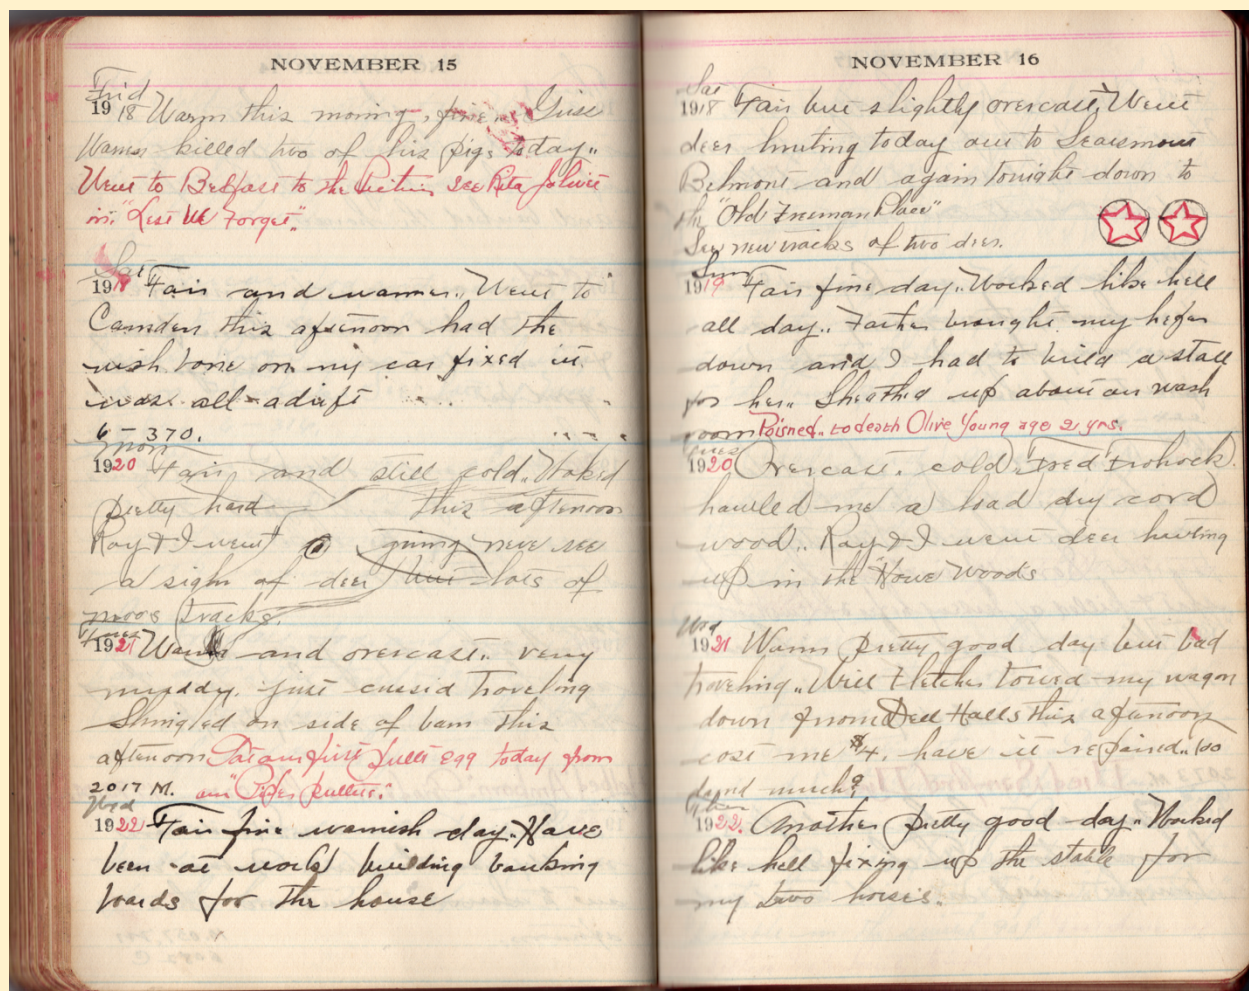 NOVEMBER 15
Frid
1918 Warm this morning, fine Guss
Warren killed two of his pigs today..
Went to Belfast to the Picture, see Rita Jolivet
in "Lest We Forget".
Sat
1919 Fair and warmer.. Went to
Camden this afternoon had the
wish bone on my car fixed it
was all adrift
6 - 370.
Mon
1920 Fair and still cold.. Worked
pretty hard this afternoon
Ray & I went guning neve see
a sign of deer but lots of
moos tracks.
Tues
1921 Warm and overcast.. very
muddy. just cussid traveling
Shingled on side of barn this
afternoon Got our first Pullet egg today from
2017 M. our "Pullets."
Wed
1922 Fair fine warmish day.. Have
been at work building banking
boards for the house
NOVEMBER 16
Sat
1918 Fair but slightly overcast, Went
deer hunting today out to Searsmont
Belmont and again tonight down to
the "Old Freeman Place"
See new tracks of two deer.
Sun
1919 Fair fine day.. Worked like hell
all day.. Father brought my hefer
down and I had to build a stall
for her.. Sheathed up about our wash
room Poisned.. to death Olive Young age 21 yrs.
Tues
1920 Overcast. cold. Fred Frohock
hauled me a load dry cord
wood.. Ray & I went deer hunting
up in the "Howe Woods
Wed
1921 Warm pretty good day but bad
traveling.. Will Fletcher towed my wagon
down from Dell Halls this afternoon
cost me $4. have it repaired.. too
damd much?
Thur
1922. Another pretty good day.. Worked
like hell fixing up the stable for
my two horses..